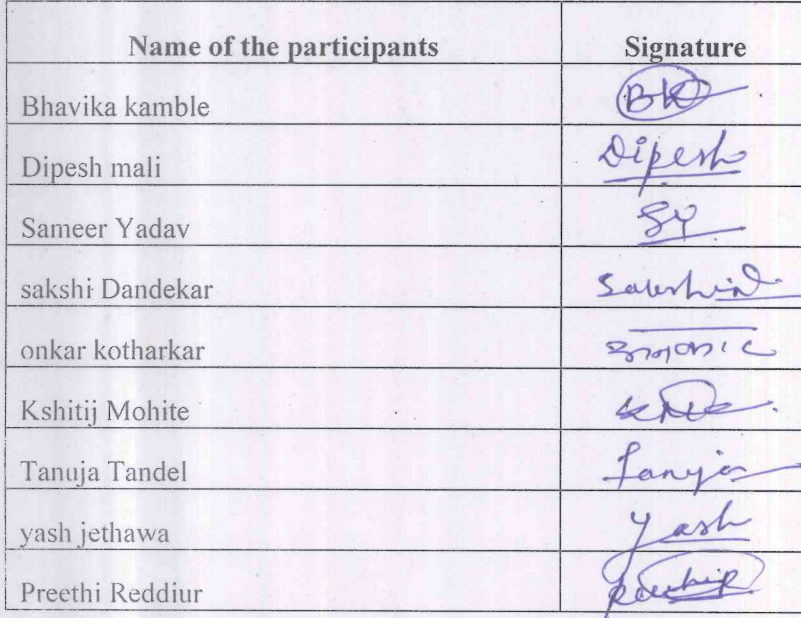 Name of the participants Signature
Bhavika kamble BK
Dipesh mali Dipesh
Sameer Yadav SY
sakshi Dandekar
onkar kotharkar
Kshitij Mohite
Tanuja Tandel Tanuja
yash jethawa Yash
Preethi Reddiur